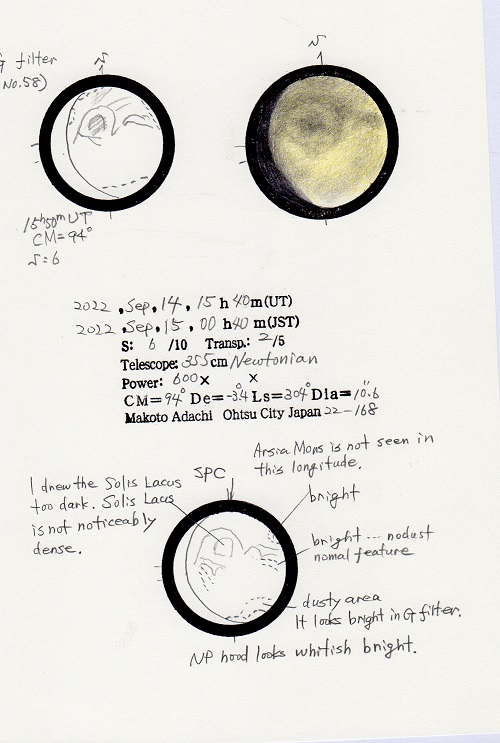 G filter
No.58)
N
N
15h50m UT
CM=94°
S=6
2022 , Sep, 14 , 15 h 40m(UT)
2022 , Sep, 15 , 00 h 40 m(JST)
S: 6 /10 Transp.: 2/5
Telescope: 355cm Newtonian
Power: 600 × ×
CM=94° De=-3.4° Ls=304° Dia=10.6"
Makoto Adachi Ohtsu City Japan 22-168
Arsia Mons is not seen in
this longitude.
I drew the Solis Lacus
too dark. Solis Lacus
is not noticeably
dense.
SPC
bright
bright ... nodust
nomal feature
dusty area
It looks bright in G filter.
NP hood looks whitish bright.